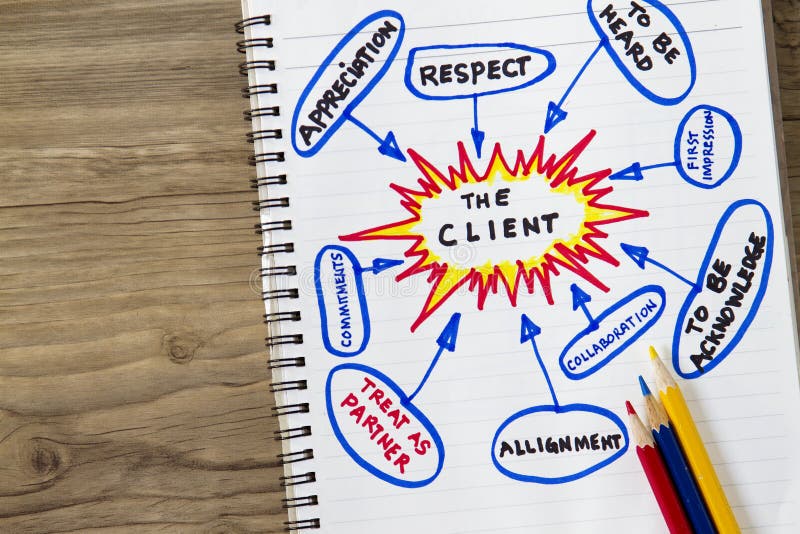 APPRECIATION
RESPECT
TO BE
HEARD
FIRST
IMPRESSION
THE
CLIENT
COMMITMENTS
TO BE
ACKNOWLEDGE
COLLABORATION
TREAT AS
PARTNER
ALLIGNMENT